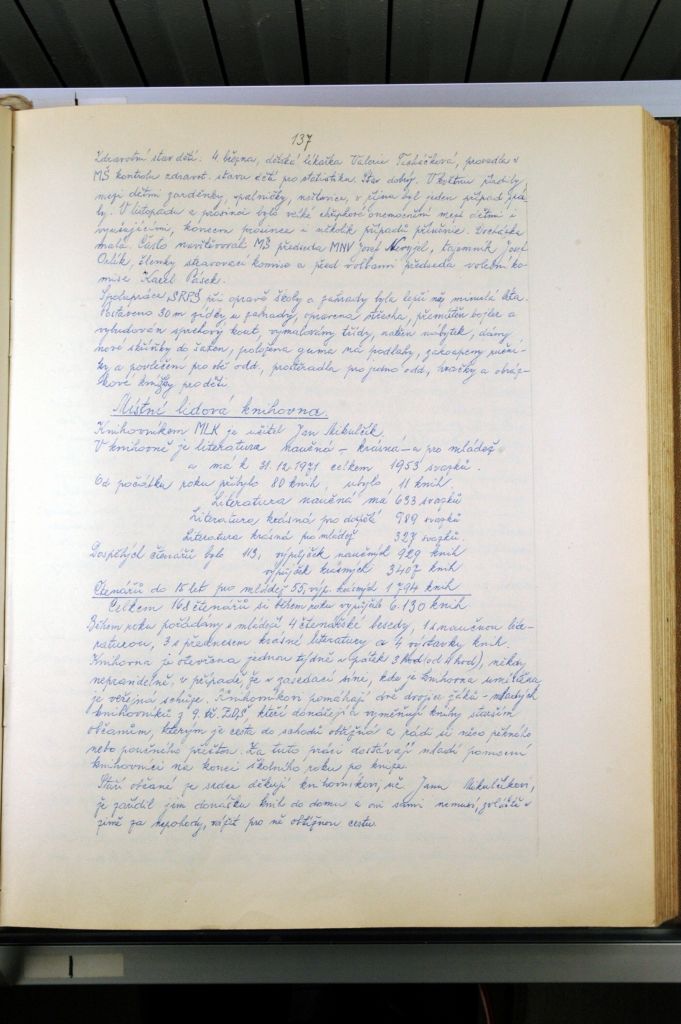 137
Zdravotní stav dětí. 4. března, dětská lékařka Valerie, provedla v
MŠ kontrolu zdravot. stavu dětí pro statistiku. Stav dobrý. V květnu řádily
mezi dětmi zarděnky, spalničky, neštovice, v říjnu byl jeden případ
V listopadu a prosinci bylo velké chřipkové onemocnění mezi dětmi i
vyučujícími, koncem prosince i několik případů příušnic. Docházka
malá. Často navštěvovali MŠ předseda MNV Josef Nevyjel, tajemník Josef
Orlík, členky stravovací komise a před volbami předseda volební ko-
mise Karel Pásek.
Spolupráce SRPŠ při opravě školy a zahrady byla lepší než minulá léta.
Postaveno 30 m zídky u zahrady, opravena střecha, přemístěn bojler a
vybudován sprchový kout, vymalovány třídy, natřen nábytek, dány
nové skříňky do šaten, položena guma na podlahy, zakoupeny ruční-
ky a povlečení pro obě odd., prostěradla pro jedno odd., hračky a obráz-
kové knížky pro děti.
Místní lidová knihovna.
Knihovníkem MLK je učitel Jan Mikulčík.
V knihovně je literatura naučná – krásná – a pro mládež
a má k 31.12.1971 celkem 1953 svazků.
Od počátku roku přibylo 80 knih, ubylo 11 knih.
Literatura naučná má 633 svazků
Literatura krásná pro dospělé 989 svazků
Literatura krásná pro mládež 327 svazků.
Dospělých čtenářů bylo 113, výpůjček naučných 929 knih
výpůjček krásných 3407 knih
Čtenářů do 15 let pro mládež 55, výp. krásných 1794 knih
Celkem 168 čtenářů si během roku vypůjčilo 6.130 knih
Během roku pořádány s mládeží 4 čtenářské besedy, 1 s naučnou lite-
raturou, 3 s přednesem krásné literatury a 4 výstavky knih.
Knihovna je otevřena jednou týdně v pátek 3 hod (od 4 hod), někdy
nepravidelně, v případě, že v zasedací síni, kde je knihovna umístěna
je veřejná schůze. Knihovníkovi pomáhají dvě dvojice žáků – mladých
knihovníků z 9. tř. ZDŠ, kteří donášejí a vyměňují knihy starším
občanům, kterým je cesta do schodů obtížná a rádi si něco pěkného
nebo poučného přečtou. Za tuto práci dostávají mladí pomocní
knihovníci na konci školního roku po knize.
Staří občané ze srdce děkují knihovníkovi, uč. Janu Mikulčíkovi,
že zařídil jim donášku knih do domu a oni sami nemusí, zvláště v
zimě za nepohody, vážit pro ně obtížnou cestu.